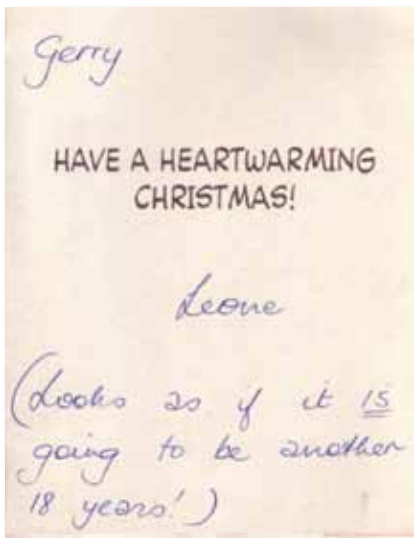 Gerry
HAVE A HEARTWARMING
CHRISTMAS!
Leone
(Looks as if it IS
going to be another
18 years!)